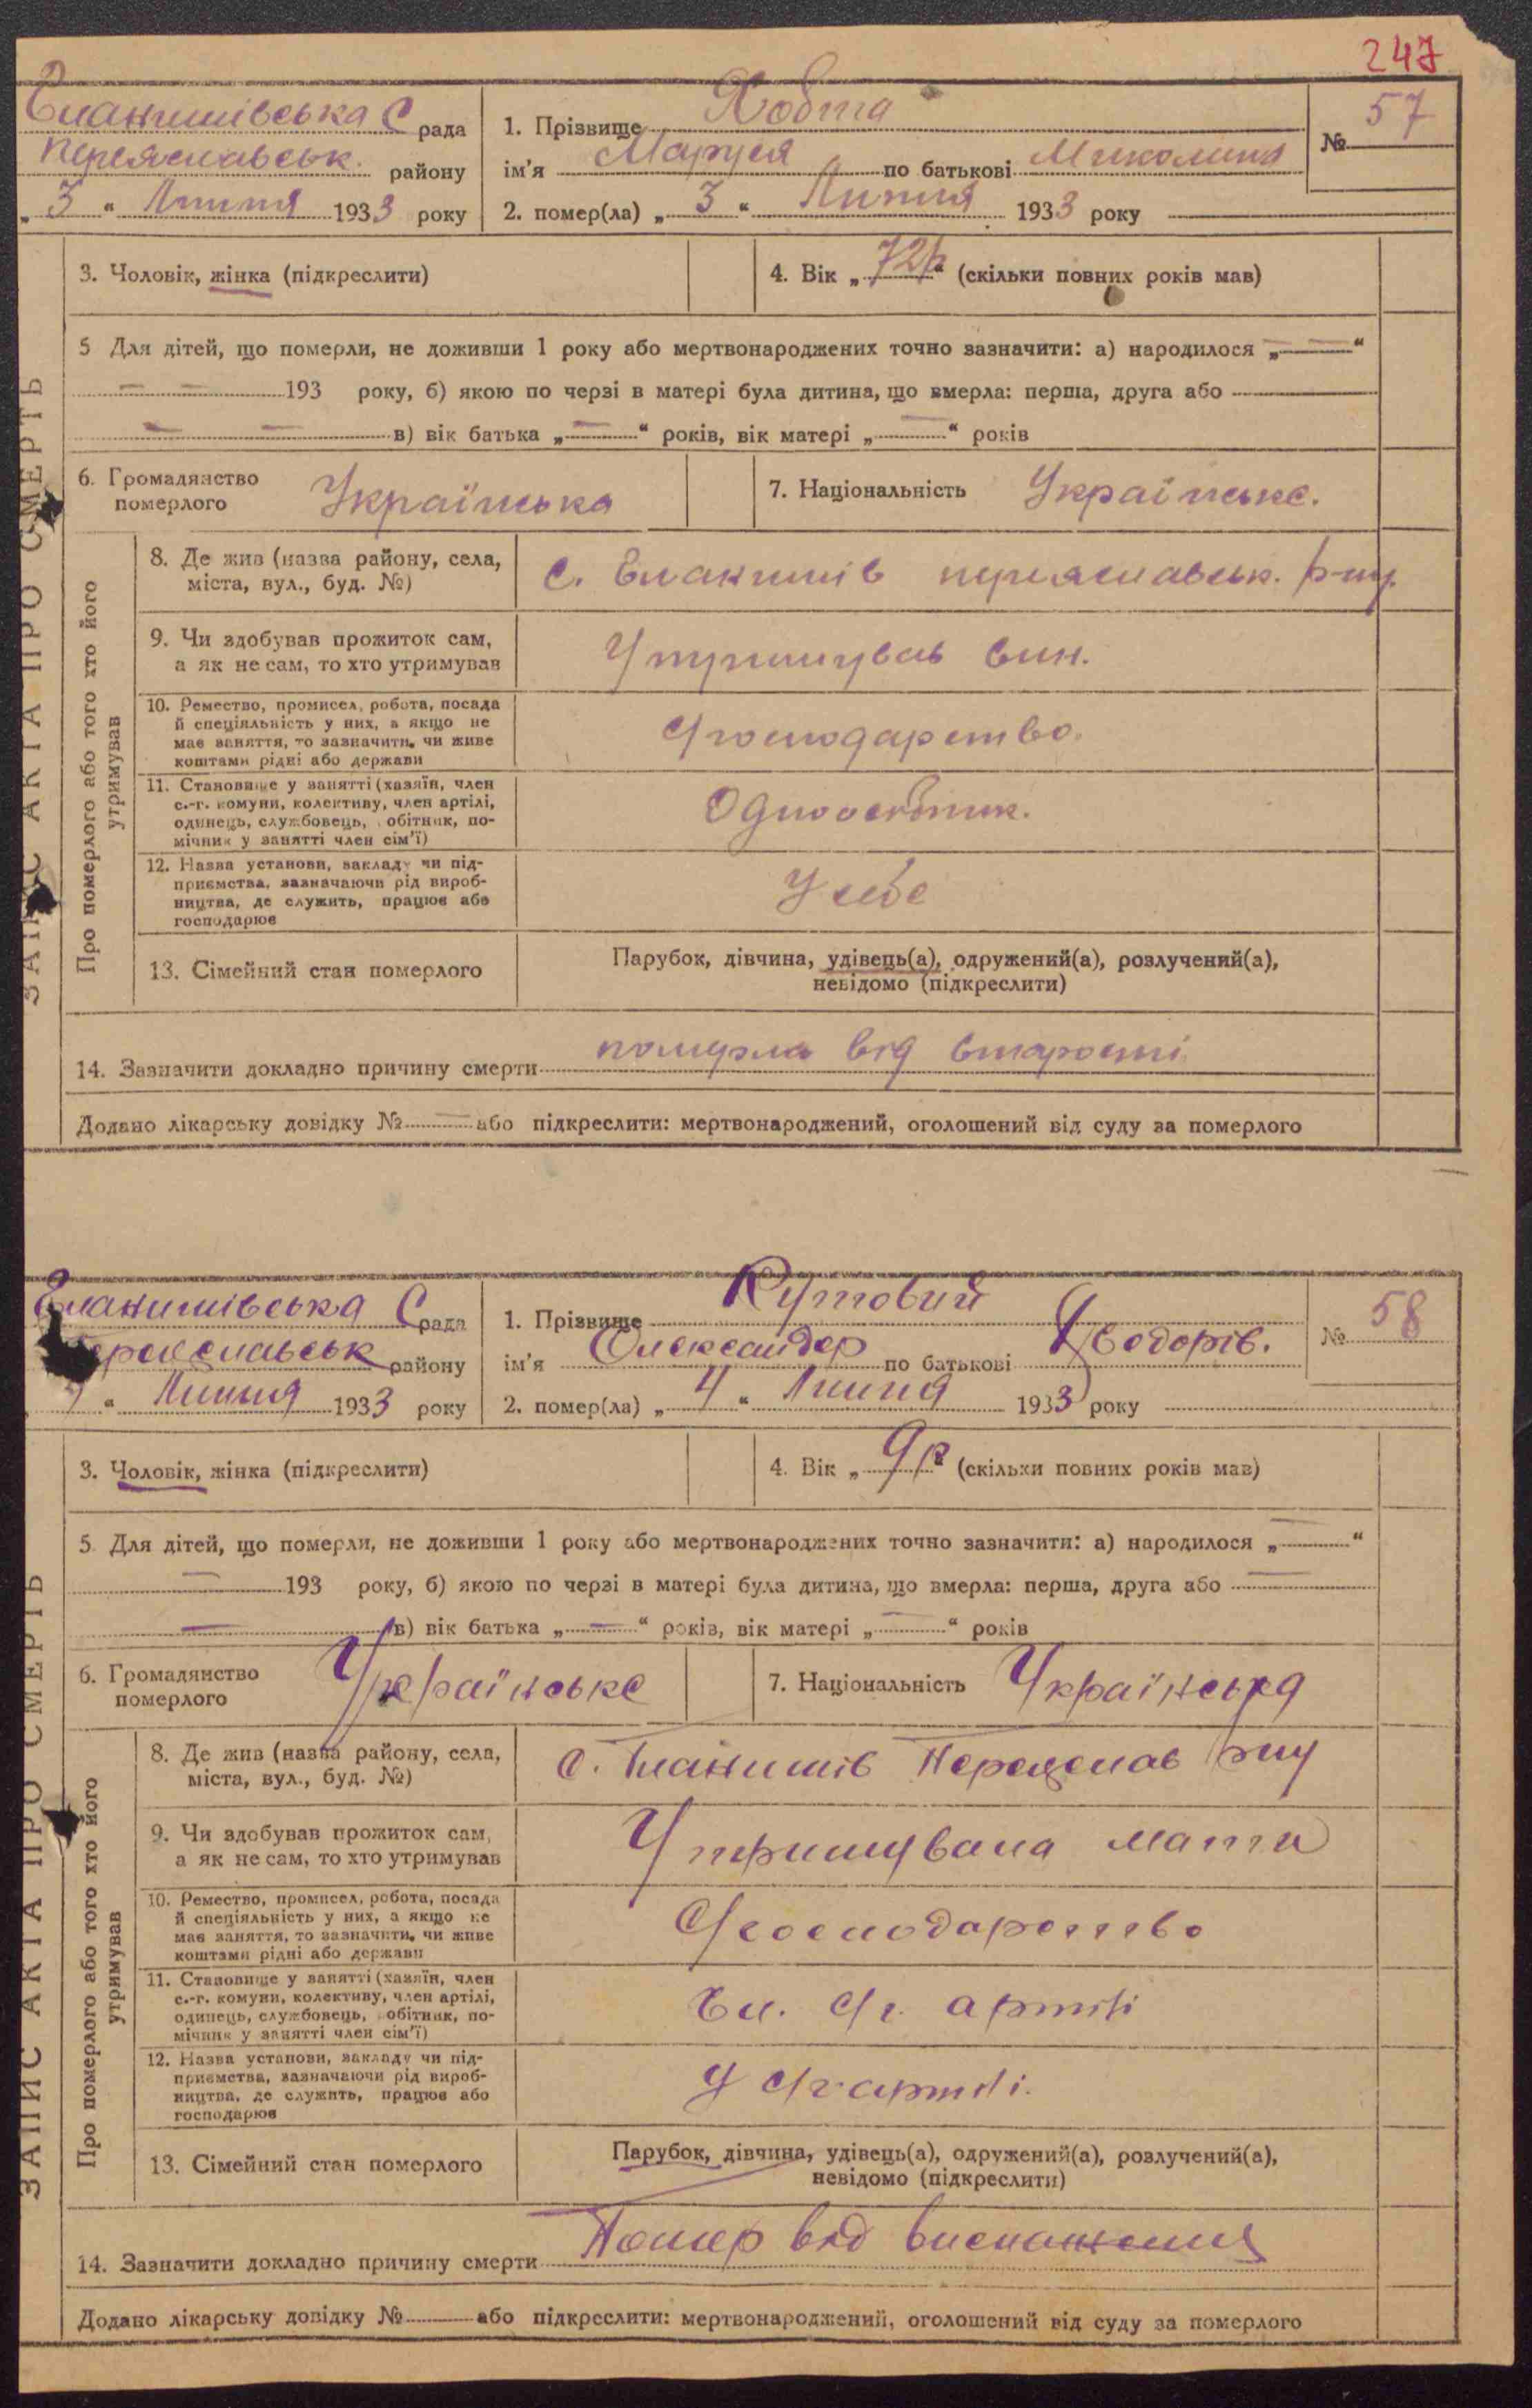 247
Єланишівська С рада
Переяславськ. району
„ 3 “ Липня 1933 року
1. Прізвище Хобта
ім'я Маруся по батькові Миколиив
2. помер(ла) „ 3 “ Липня 1933 року
№ 57
3. Чоловік, жінка (підкреслити)
4. Вік „ 72р “ (скільки повних років мав)
5 Для дітей, що померли, не доживши 1 року або мертвонароджених точно зазначити: а) народилося „ — “
— — 193 року, б) якою по черзі в матері була дитина, що вмерла: перша, друга або
— — в) вік батька „ — “ років, вік матері „ — “ років
6. Громадянство
померлого
Українська
7. Національність Українське.
ЗАПИС АКТА ПРО СМЕРТЬ
Про померлого або того хто його
утримував
8. Де жив (назва району, села,
міста, вул., буд. №)
с. Єланишів переяславськ. р-ну.
9. Чи здобував прожиток сам,
а як не сам, то хто утримував
Утримував син.
10. Ремество, промисел, робота, посада
й спеціяльність у них, а якщо не
має заняття, то зазначити, чи живе
коштами рідні або держави
С/господарство.
11. Становище у занятті (хазяїн, член
с.-г. комуни, колективу, член артілі,
одинець, службовець, обітник, по-
мічник у занятті член сім'ї)
Одноосібник.
12. Назва установи, закладу чи під-
приємства, зазначаючи рід вироб-
ництва, де служить, працює або
господарює
У себе
13. Сімейний стан померлого
Парубок, дівчина, удівець(а), одружений(а), розлучений(а),
невідомо (підкреслити)
14. Зазначити докладно причину смерти померла від старості
Додано лікарську довідку № — або підкреслити: мертвонароджений, оголошений від суду за померлого
Єланишівська С рада
Переяславськ району
“ Липня 1933 року
1. Прізвище Кутовий
ім'я Олександер по батькові Хведорів.
2. помер(ла) „ 4 “ Липня 1933 року
№ 58
3. Чоловік, жінка (підкреслити)
4. Вік „ 9р “ (скільки повних років мав)
5. Для дітей, що померли, не доживши 1 року або мертвонароджених точно зазначити: а) народилося „ — “
— 193 року, б) якою по черзі в матері була дитина, що вмерла: перша, друга або —
— в) вік батька „ — “ років, вік матері „ — “ років
6. Громадянство
померлого
Українське
7. Національність Українська
ЗАПИС АКТА ПРО СМЕРТЬ
Про померлого або того хто його
утримував
8. Де жив (назва району, села,
міста, вул., буд. №)
с. Єланишів Переяслав р-ну
9. Чи здобував прожиток сам,
а як не сам, то хто утримував
Утримувала мати
10. Ремество, промисел, робота, посада
й спеціяльність у них, а якщо не
має заняття, то зазначити, чи живе
коштами рідні або держави
С/господарство
11. Становище у занятті (хазяїн, член
с.-г. комуни, колективу, член артілі,
одинець, службовець, обітник, по-
мічник у занятті член сім'ї)
Чл. с/г. артілі
12. Назва установи, закладу чи під-
приємства, зазначаючи рід вироб-
ництва, де служить, працює або
господарює
У с/г артілі.
13. Сімейний стан померлого
Парубок, дівчина, удівець(а), одружений(а), розлучений(а),
невідомо (підкреслити)
14. Зазначити докладно причину смерти Помер від виснаження
Додано лікарську довідку № або підкреслити: мертвонароджений, оголошений від суду за померлого